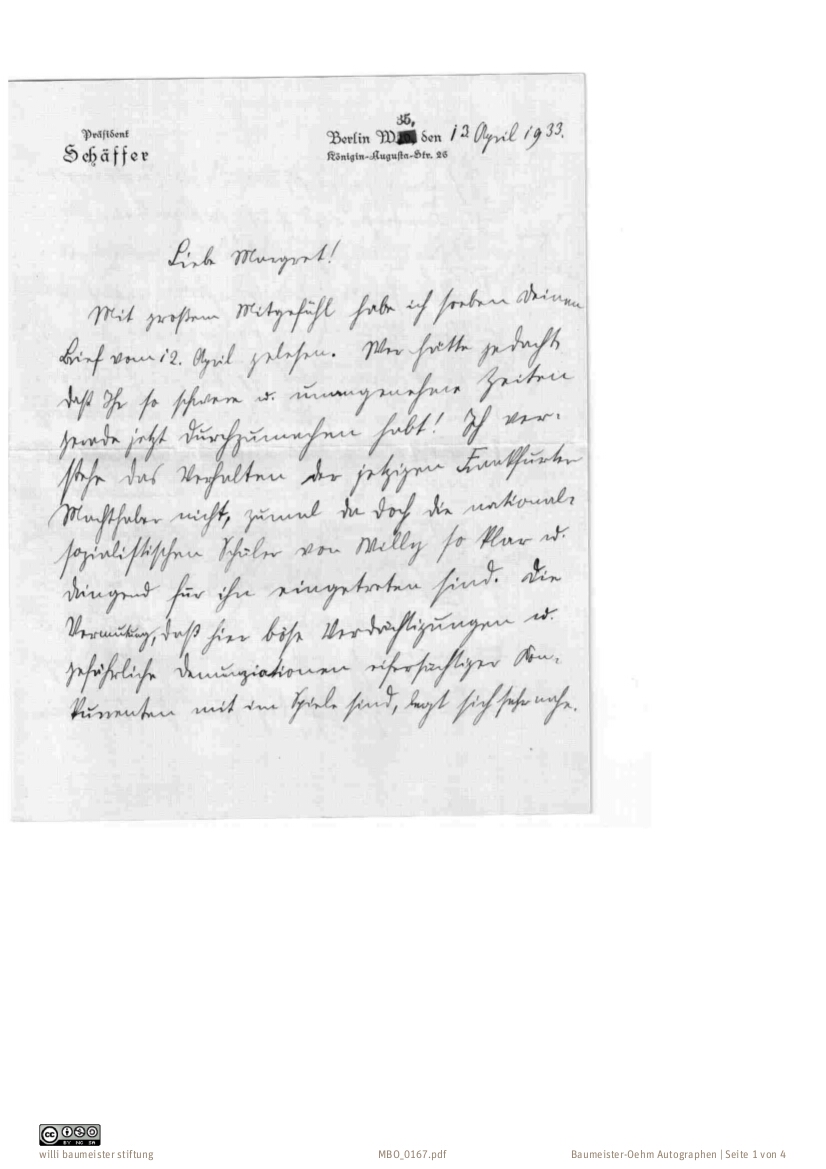 Präsident
Schäffer
35,
Berlin W den 13 April 1933.
Königin-Augusta-Str. 26
Liebe Margret!
Mit großem Mitgefühl habe ich soeben Deinen
Brief vom 12. April gelesen. Wer hätte gedacht
daß Ihr so schwere u. unangenehme Zeiten
gerade jetzt durchzumachen habt! Ich ver-
stehe das Verhalten der jetzigen Frankfurter
Machthaber nicht, zumal da doch die national-
sozialistischen Schüler von Willy so klar u.
dringend für ihn eingetreten sind. Die
Vermutung, daß hier böse Verdächtigungen u.
gefährliche Denunziationen eifersüchtiger Kon-
kurrenten mit im Spiele sind, liegt sich sehr nahe.
CC BY NC SA
willi baumeister stiftung
MBO_0167.pdf
Baumeister-Oehm Autographen | Seite 1 von 4